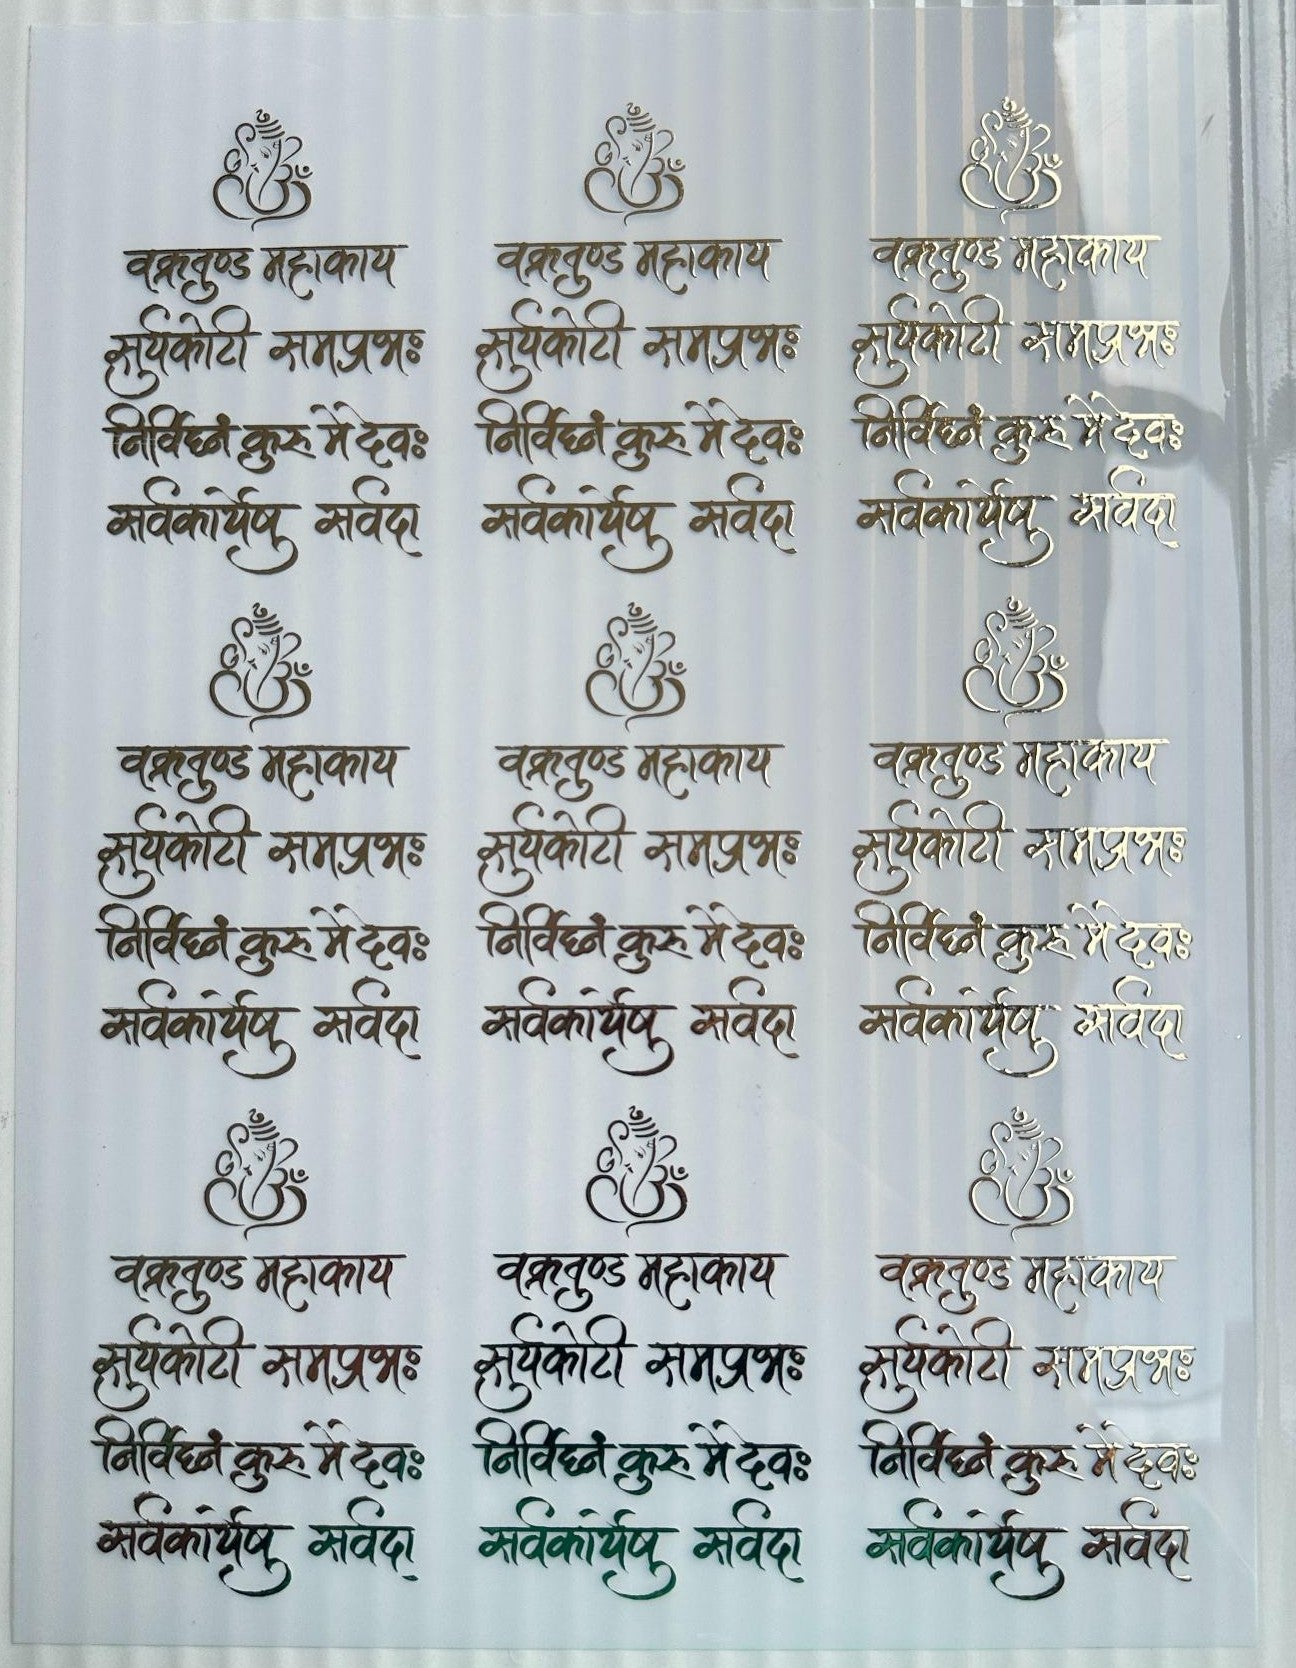 वक्रतुण्ड महाकाय
सुर्यकोटी समप्रभः
निर्विघ्नं कुरु मे देवः
सर्वकार्येषु सर्वदा
वक्रतुण्ड महाकाय
सुर्यकोटी समप्रभः
निर्विघ्नं कुरु मे देवः
सर्वकार्येषु सर्वदा
वक्रतुण्ड महाकाय
सुर्यकोटी समप्रभः
निर्विघ्नं कुरु मे देवः
सर्वकार्येषु सर्वदा
वक्रतुण्ड महाकाय
सुर्यकोटी समप्रभः
निर्विघ्नं कुरु मे देवः
सर्वकार्येषु सर्वदा
वक्रतुण्ड महाकाय
सुर्यकोटी समप्रभः
निर्विघ्नं कुरु मे देवः
सर्वकार्येषु सर्वदा
वक्रतुण्ड महाकाय
सुर्यकोटी समप्रभः
निर्विघ्नं कुरु मे देवः
सर्वकार्येषु सर्वदा
वक्रतुण्ड महाकाय
सुर्यकोटी समप्रभः
निर्विघ्नं कुरु मे देवः
सर्वकार्येषु सर्वदा
वक्रतुण्ड महाकाय
सुर्यकोटी समप्रभः
निर्विघ्नं कुरु मे देवः
सर्वकार्येषु सर्वदा
वक्रतुण्ड महाकाय
सुर्यकोटी समप्रभः
निर्विघ्नं कुरु मे देवः
सर्वकार्येषु सर्वदा